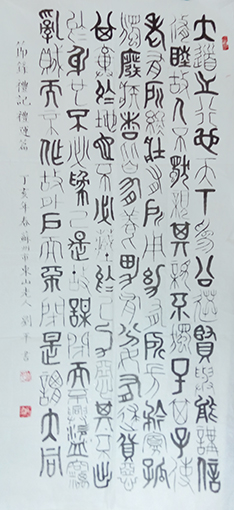 大道之行也天下為公選賢與能講信
修睦故人不獨親其親不獨子其子使
老有所終壯有所用幼有所長矜寡孤
獨廢疾者皆有所養男有分女有歸貨惡
其棄於地也不必藏於己力惡其不出
於身也不必為己是故謀閉而不興盜竊
亂賊而不作故外戶而不閉是謂大同
節錄禮記禮運篇 丁亥年春蘇州市東山老人劉書